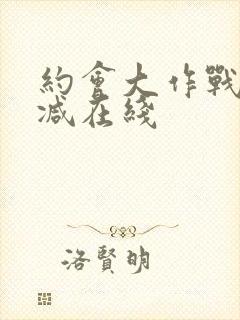 約會大作戰
减在綫
洛賢明